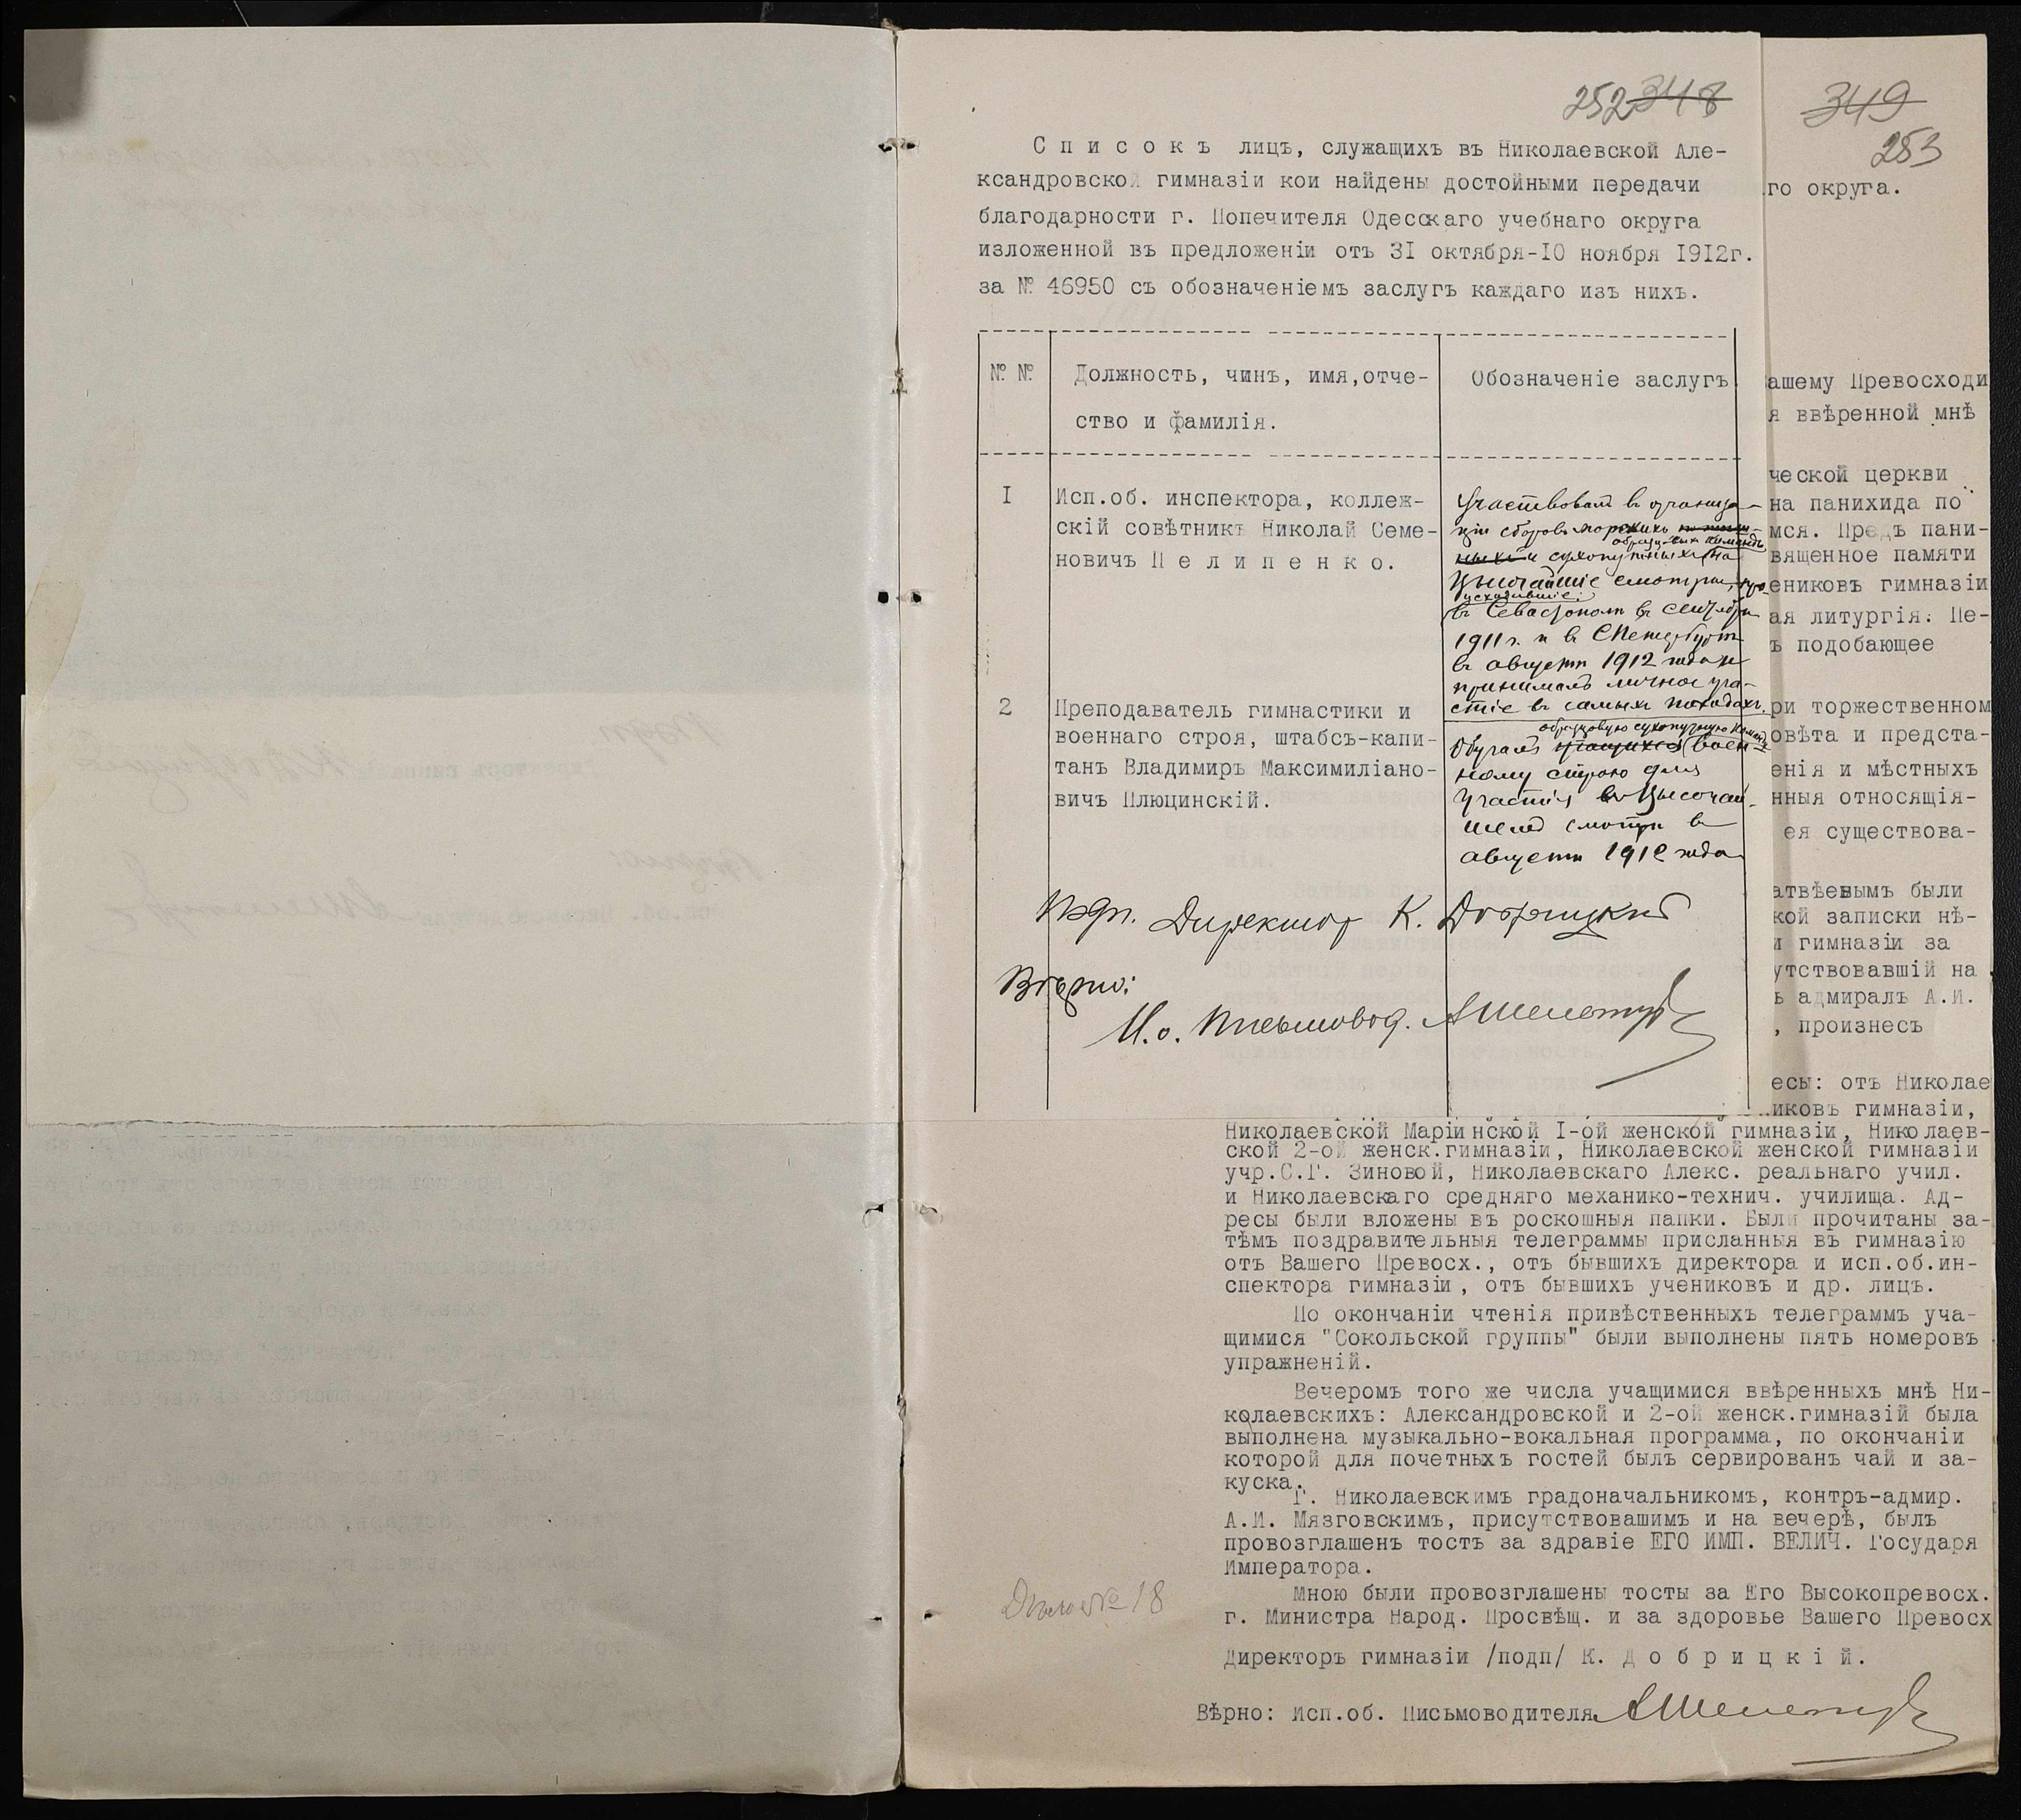 252 348
Списокъ лицъ, служащихъ въ Николаевской Але-
ксандровской гимназіи кои найдены достойными передачи
благодарности г. Попечителя Одесскаго учебнаго округа
изложенной въ предложеніи отъ 31 октября-10 ноября 1912г.
за № 46950 съ обозначеніемъ заслугъ каждаго изъ нихъ.
№ №
Должность, чинъ, имя,отче-
ство и фамилія.
Обозначеніе заслугъ
1
Исп.об. инспектора, коллеж-
скій совѣтникъ Николай Семе-
новичъ Пелипенко.
Участвовалъ въ организа-
ціи сборовъ морскихъ
образцовыхъ командъ
и сухопутныхъ на
Высочайшіе смотры,
въ Севастополѣ въ сентябрѣ
1911 г. и въ СПетербургѣ
въ августѣ 1912 года и
принималъ личное уча-
стіе въ самыхъ походахъ.
2
Преподаватель гимнастики и
военнаго строя, штабсъ-капи-
танъ Владимиръ Максимиліано-
вичъ Плюцинскій.
образцовую сухопутную команду
Обучалъ учащихся воен-
ному строю для
участія въ Высочай-
шемъ смотрѣ въ
августѣ 1912 года
Подп. Директор К. Добрицкій
Вѣрно:
И.о. Письмовод. АШелест
349
253
го округа.
ашему Превосходи
я ввѣренной мнѣ
ческой церкви
на панихида по
мся. Предъ пани-
вященное памяти
ениковъ гимназіи
ая литургія. Пе-
ъ подобающее
ри торжественном
овѣта и предста-
енія и мѣстныхъ
нныя относящія-
ея существова-
атвѣевымъ были
кой записки нѣ-
и гимназіи за
утствовавшій на
ь адмиралъ А.И.
, произнесъ
есы: отъ Николае
иковъ гимназіи,
Николаевской Маріинской I-ой женской гимназіи, Николаев-
ской 2-ой женск.гимназіи, Николаевской женской гимназіи
учр.С.Г. Зиновой, Николаевскаго Алекс. реальнаго учил.
и Николаевскаго средняго механико-технич. училища. Ад-
ресы были вложены въ роскошныя папки. Были прочитаны за-
тѣмъ поздравительныя телеграммы присланныя въ гимназію
отъ Вашего Превосх., отъ бывшихъ директора и исп.об.ин-
спектора гимназіи, отъ бывшихъ учениковъ и др. лицъ.
По окончаніи чтенія привѣственныхъ телеграммъ уча-
щимися "Сокольской группы" были выполнены пять номеровъ
упражненій.
Вечеромъ того же числа учащимися ввѣренныхъ мнѣ Ни-
колаевскихъ: Александровской и 2-ой женск.гимназій была
выполнена музыкально-вокальная программа, по окончаніи
которой для почетныхъ гостей былъ сервированъ чай и за-
куска.
Г. Николаевскимъ градоначальникомъ, контръ-адмир.
А.И. Мязговскимъ, присутствовашимъ и на вечерѣ, былъ
провозглашенъ тостъ за здравіе ЕГО ИМП. ВЕЛИЧ. Государя
Императора.
Мною были провозглашены тосты за Его Высокопревосх.
г. Министра Народ. Просвѣщ. и за здоровье Вашего Превосх
Дѣло № 18
Директоръ гимназіи /подп/ К. Добрицкій.
Вѣрно: Исп.об. Письмоводителя АШелест